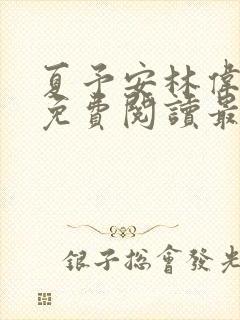 夏予安林偉
免費閱讀最
銀子總會發光